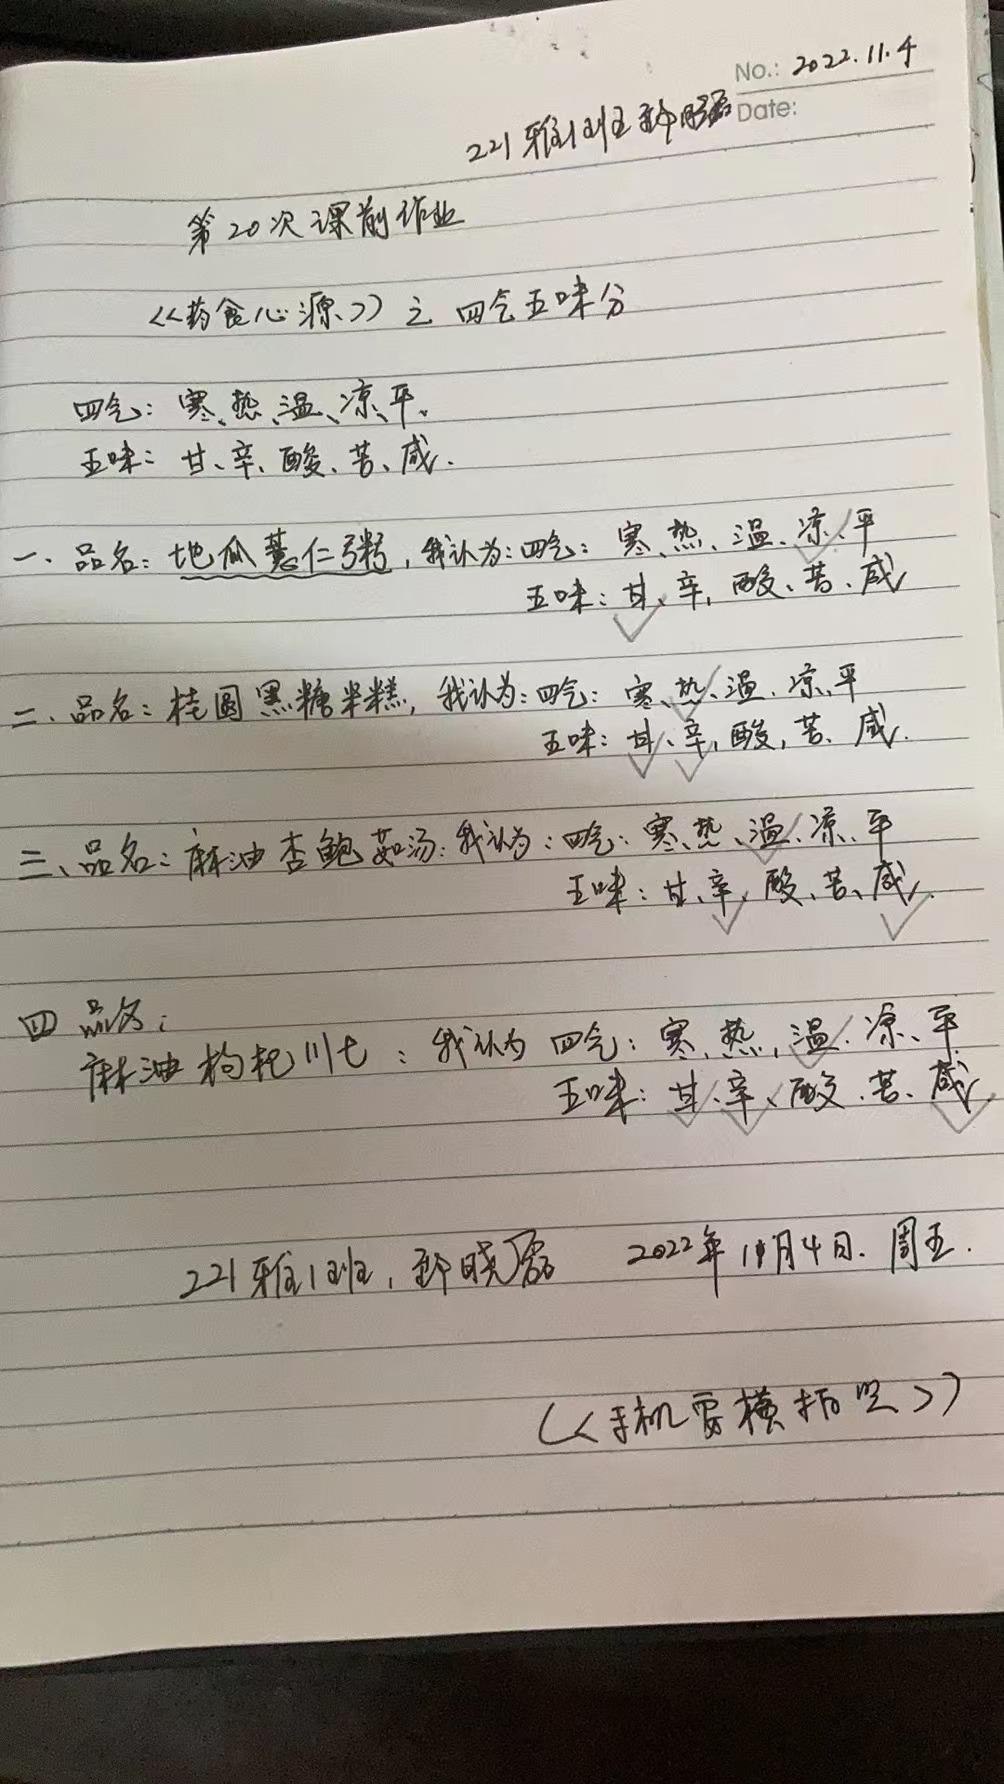 No.: 2022.11.4
Date:
221雅1班 靳晓磊
第20次课前作业
《药食心源》之四气五味分
四气：寒、热、温、凉、平.
五味：甘、辛、酸、苦、咸.
一、品名：地瓜薏仁粥，我认为：四气：寒、热、温、凉、平
五味：甘、辛，酸、苦、咸
二、品名：桂圆黑糖米糕，我认为：四气：寒、热、温、凉、平
五味：甘、辛，酸，苦、咸.
三、品名：麻油杏鲍菇汤：我认为：四气：寒、热、温、凉、平
五味：甘、辛、酸、苦、咸.
四 品名：
麻油枸杞川七：我认为 四气：寒、热，温、凉、平
五味：甘、辛、酸、苦、咸
221雅1班，靳晓磊 2022年11月4日. 周五.
《手机需横拍照》